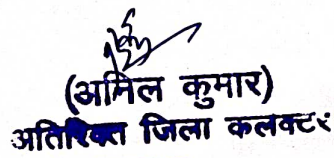 (अनिल कुमार)
अतिरिक्त जिला कलक्टर